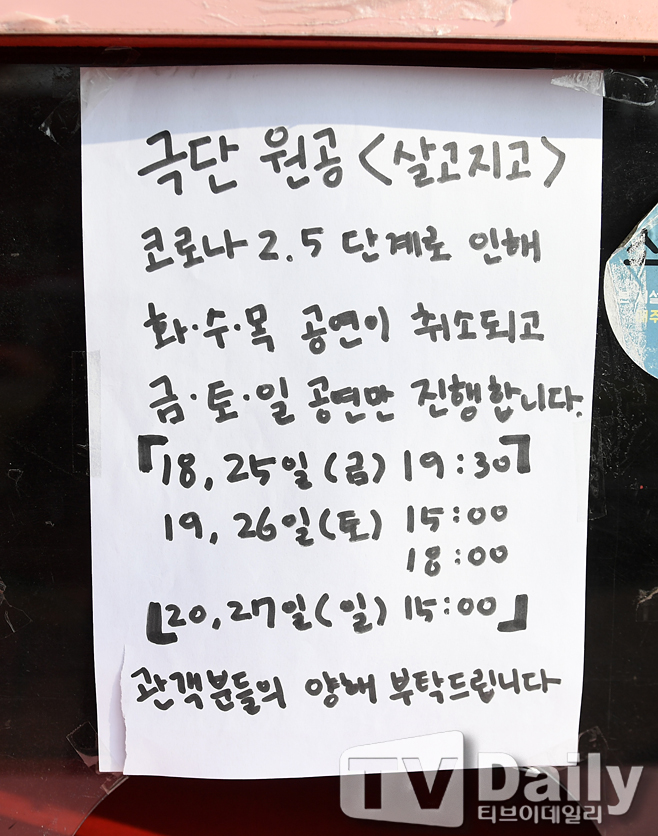 극단 원공 <살고지고>
코로나 2.5 단계로 인해
화·수·목 공연이 취소되고
금·토·일 공연만 진행합니다.
「18, 25일(금) 19:30
19, 26일(토) 15:00
18:00
20, 27일(일) 15:00」
관객분들의 양해 부탁드립니다
TV Daily
티브이데일리